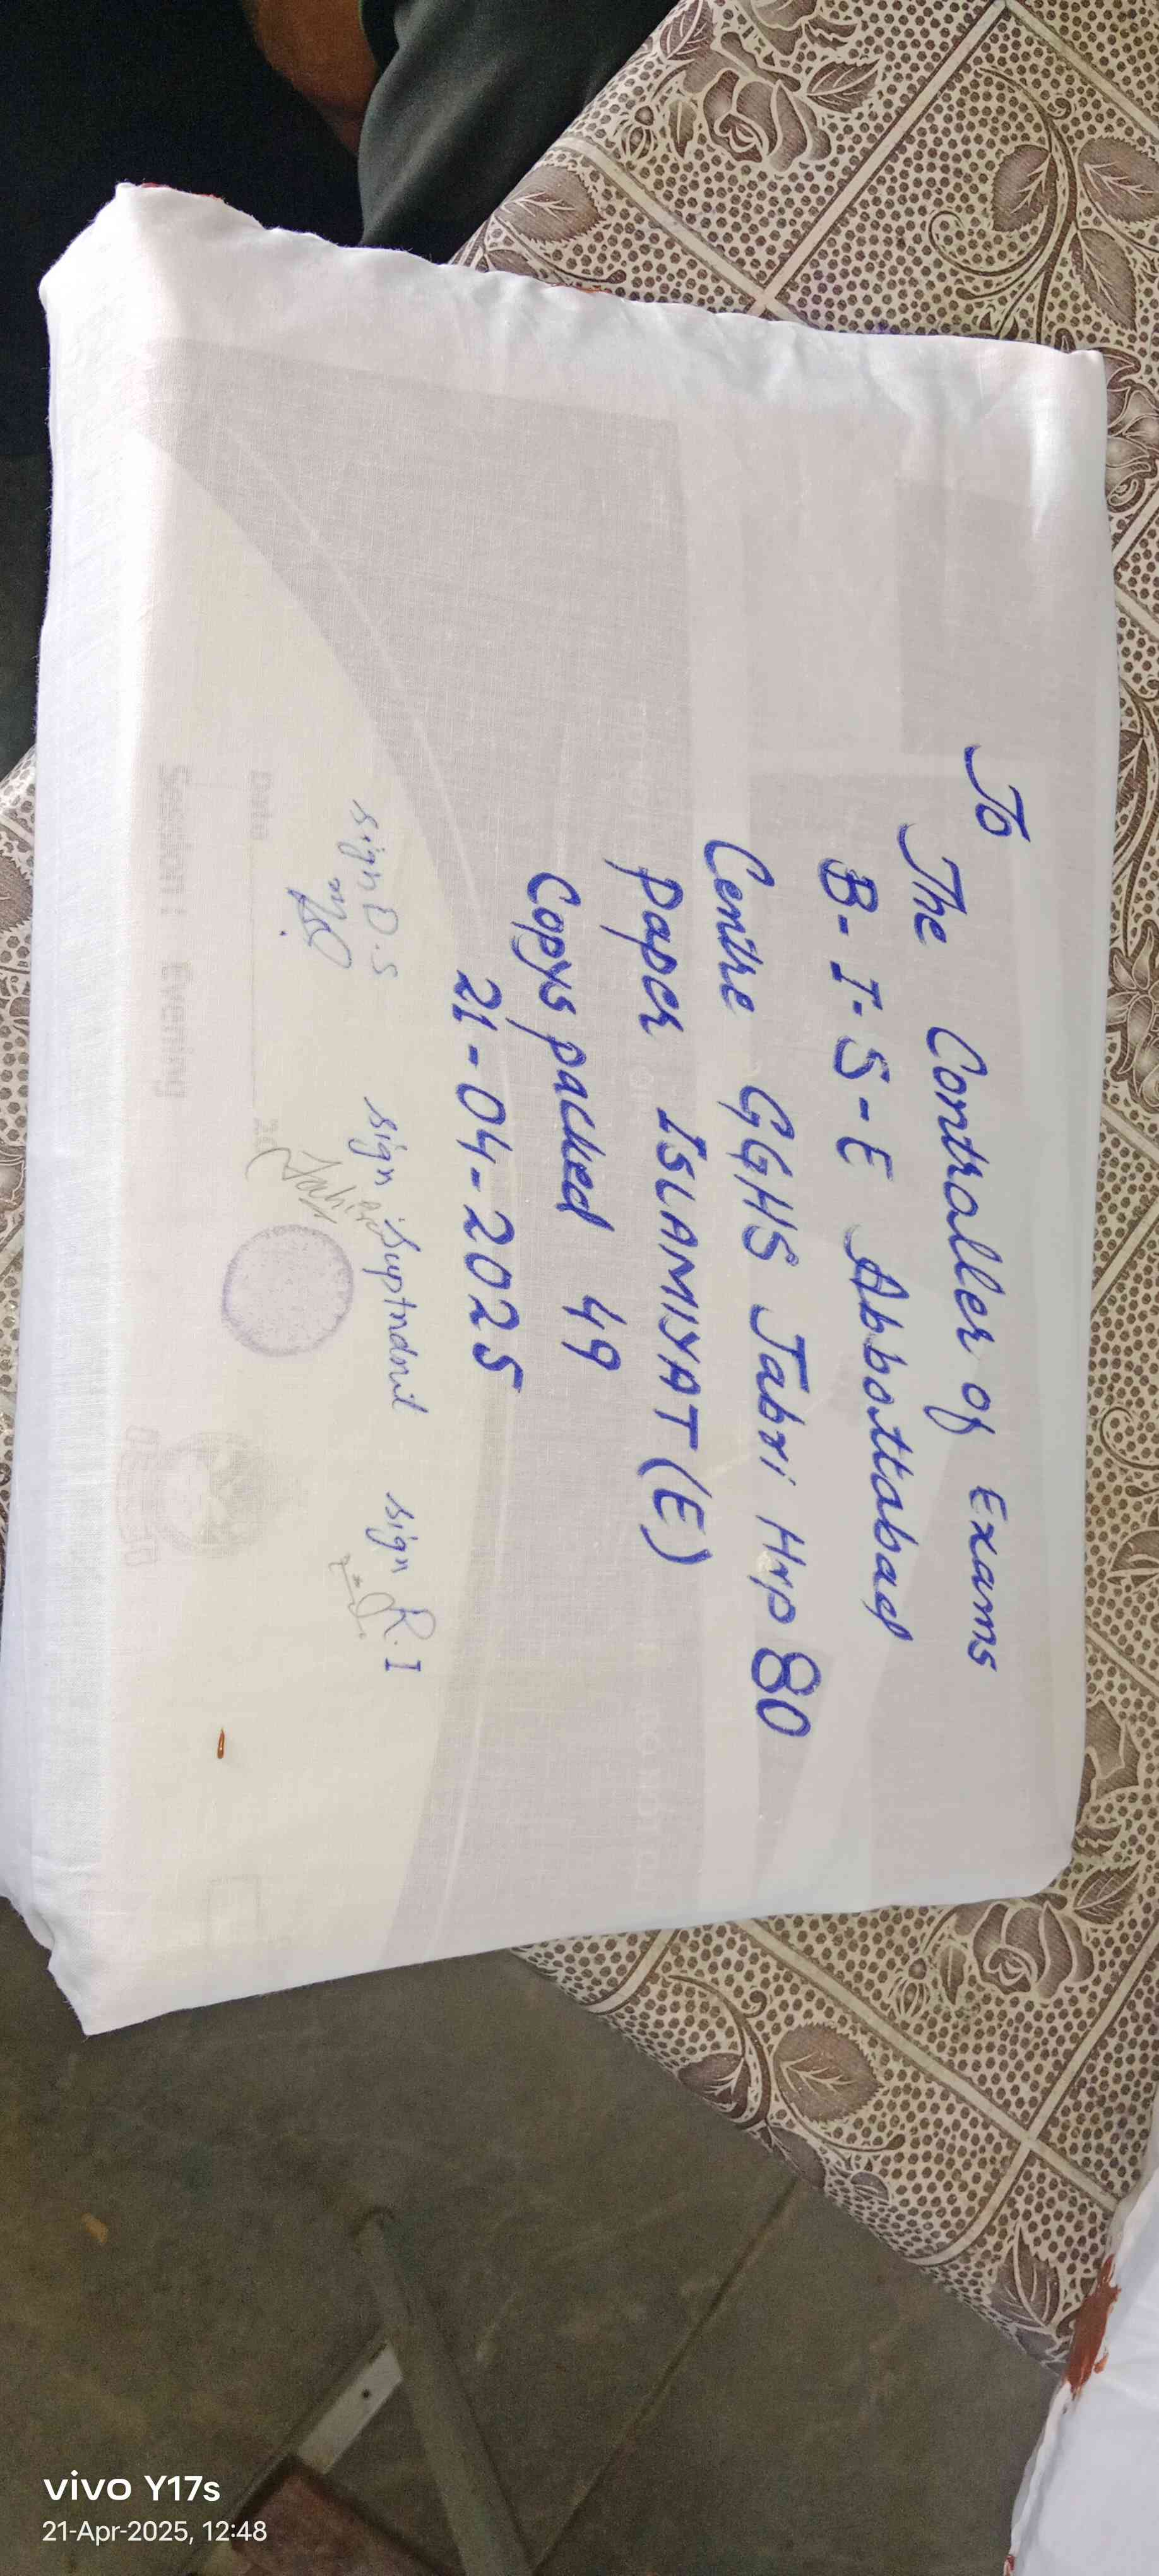 To
The Controller of Exams
B-I-S-E Abbottabad
Centre GGHS Jabri Hrp 80
Paper ISLAMIYAT (E)
Copys packed 49
21-04-2025
sign D.S
sign Suptndnt
sign R.I
Date 20
Session: Evening
vivo Y17s
21-Apr-2025, 12:48